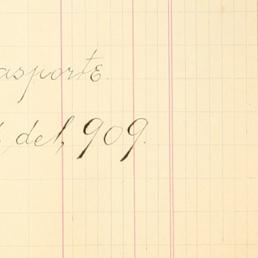 asporte.
del, 909.